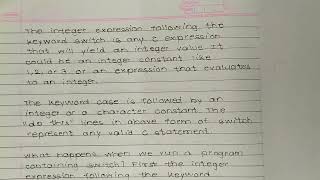 The integer expression following the
keyword switch is any C expression
that will yield an integer value. It
could be an integer constant like
1, 2, or 3 or an expression that evaluates
to an integer.
The keyword case is followed by an
integer or a character constant. The
"do this" lines in above form of switch
represent any valid C statement.
What happens when we run a program
containing switch? First the integer
expression following the keyword